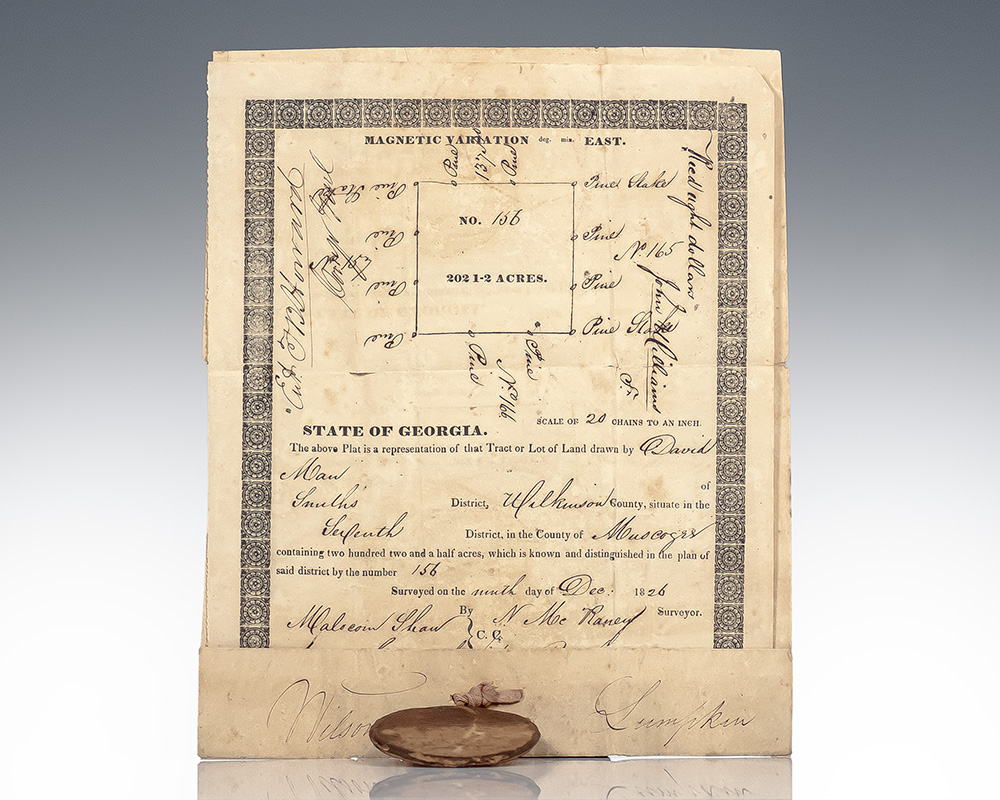 MAGNETIC VARIATION deg. min. EAST.
Pine
137
Pine
Pine Stake
Pine
Pine
Pine
NO. 156
202 1-2 ACRES.
Pine Stake
Pine
No. 165
Pine
Pine Stake
Pine
No. 166
Pine
eight dollars
John Williams
SCALE OF 20 CHAINS TO AN INCH.
STATE OF GEORGIA.
The above Plat is a representation of that Tract or Lot of Land drawn by David
Man
of
Smith's District, Wilkinson County, situate in the
Seventh District, in the County of Muscogee
containing two hundred two and a half acres, which is known and distinguished in the plan of
said district by the number 156
Surveyed on the ninth day of Dec: 1826
By N. McRaney Surveyor.
Malcom Shaw
C. C.
Wilson Lumpkin